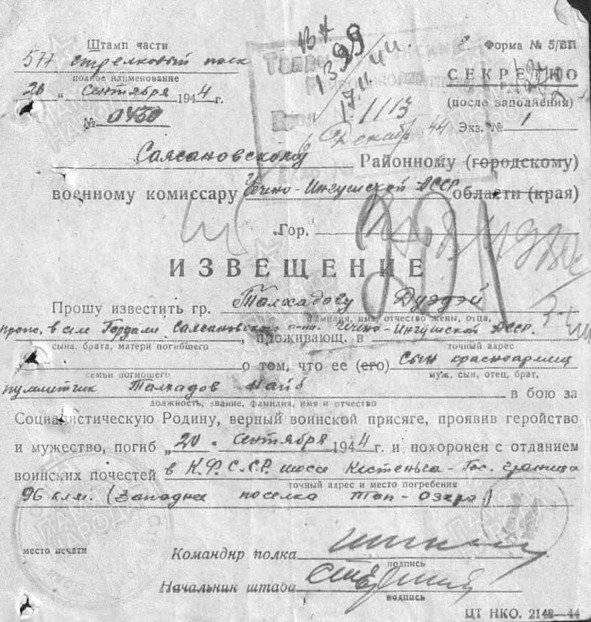 Штамп части
577 стрелковый полк
полное наименование
20 " сентября 1944 г.
№ 0430
2 Форма № 5/БП
СЕКРЕТНО
(после заполнения)
Экз. № 1
1113
декабр 44
Саясановскому Районному (городскому)
военному комиссару Чечено-Ингушской АССР области (края)
Гор.
ИЗВЕЩЕНИЕ
Прошу известить гр. Талхадову
фамилия, имя, отчество жены, отца,
прож. в сел Гордали Саясановского Чечено-Ингушской АССР.
сына, брата, матери погибшего
, проживающ. в
точный адрес
семьи погибшего
о том, что ее (его) сын красноармеец
муж, сын, отец, брат,
пулеметчик Талхадов
должность, звание, фамилия, имя и отчество
в бою за
Социалистическую Родину, верный воинской присяге, проявив геройство
и мужество, погиб „20 " сентября 1944 г. и похоронен с отданием
воинских почестей в К.Ф.С.С.Р. шоссе Кестеньга - Гос. граница
точный адрес и место погребения
96 клм. (Западнее поселка Топ-Озеро)
место печати
Командир полка
подпись
Начальник штаба
подпись
ЦТ НКО. 2148—44